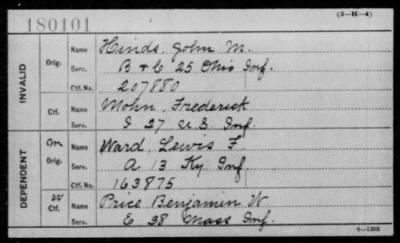 180101
(3-H-4)
INVALID
Orig.
Name Hinds, John M.
Serv. B & C 25 Ohio Inf.
Ctf. No. 207880
Ctf.
Name Mohn, Frederick
Serv. I 27 U.S. Inf.
DEPENDENT
On
Orig.
Name Ward, Lewis F.
Serv. A 13 Ky Inf.
Ctf. No. 163875
W
Ctf.
Name Price Benjamin W.
Serv. E 38 Mass Inf.